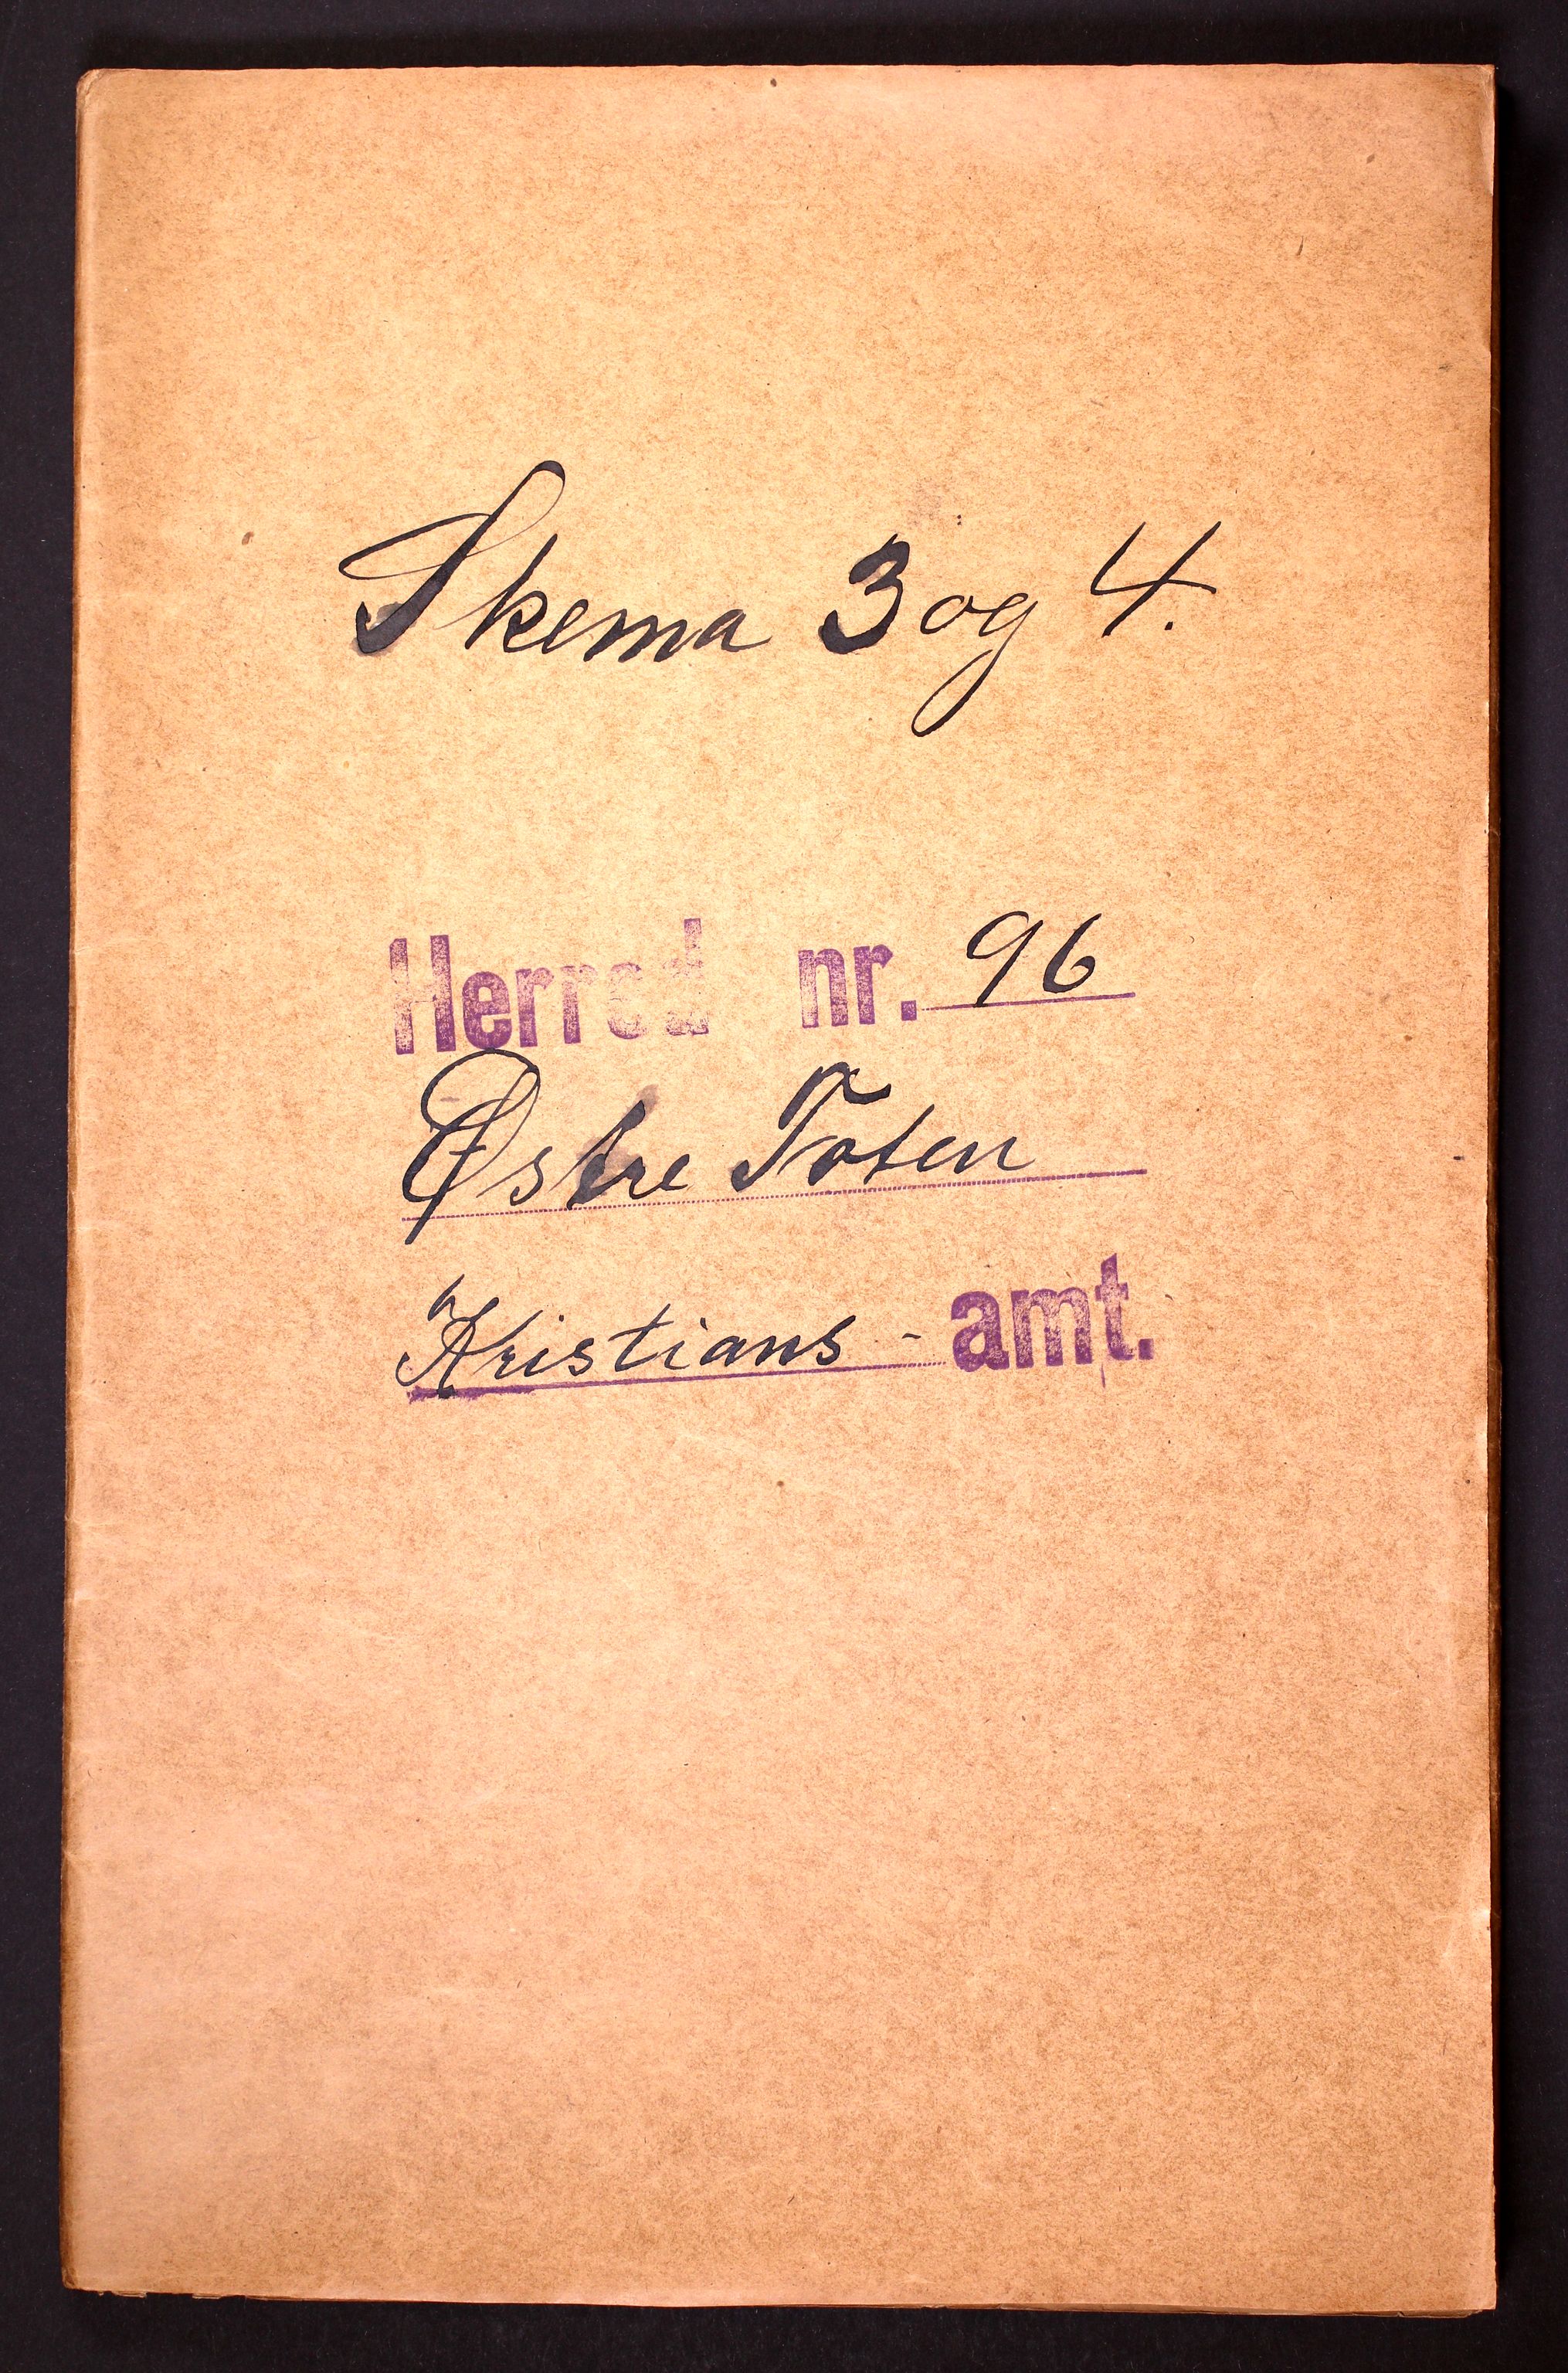 Skema 3 og 4.
Herred nr. 96
Østre Toten
Kristians - amt.